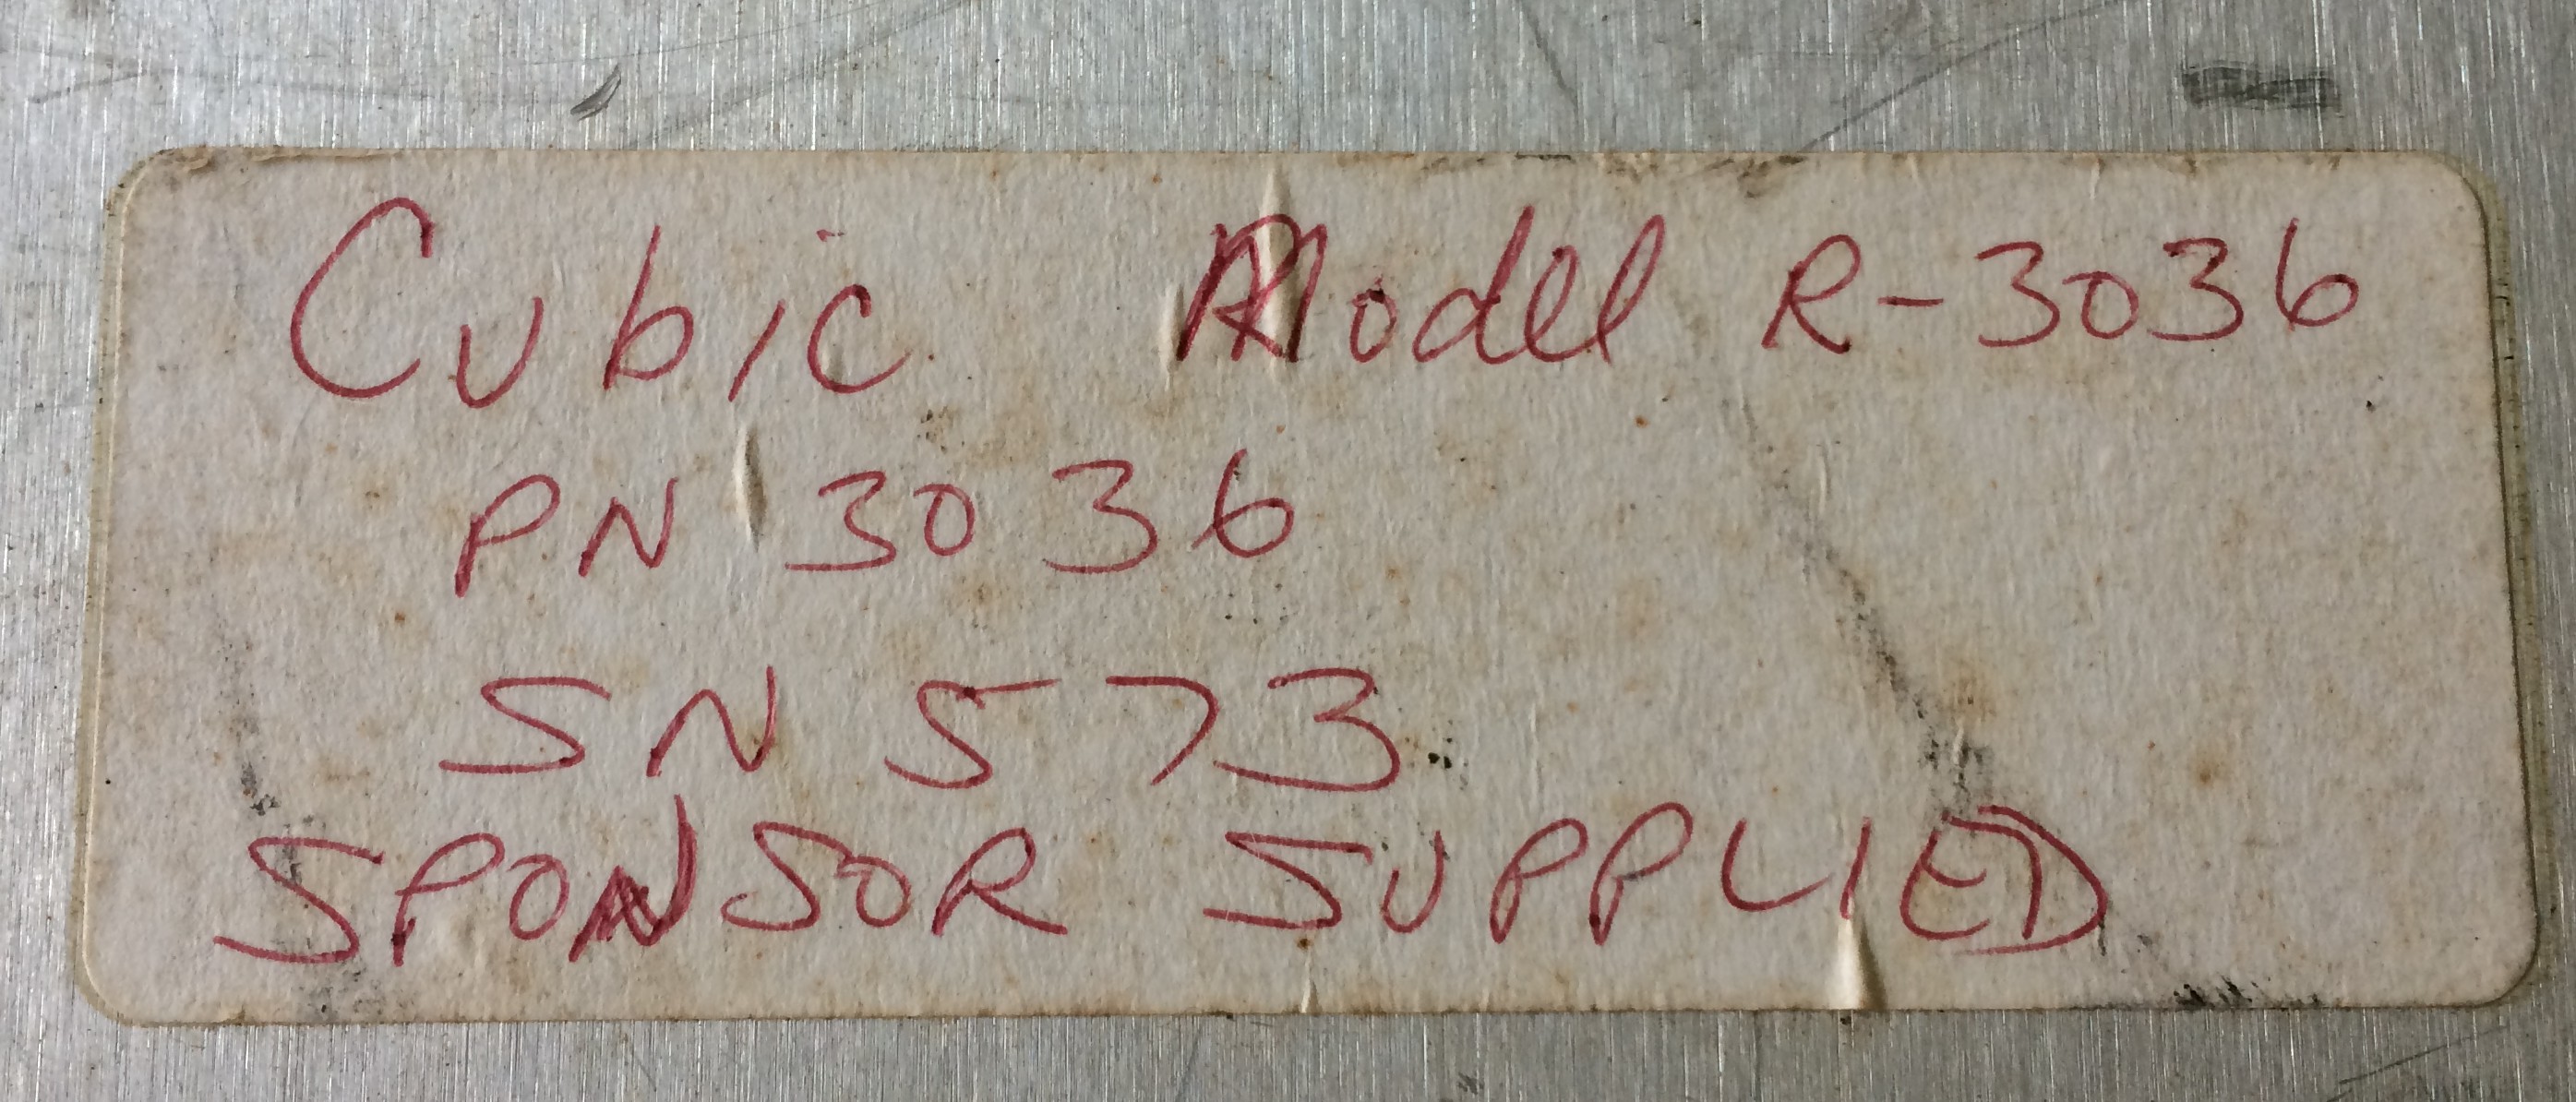 Cubic Model R-3036
PN 3036
SN 573
SPONSOR SUPPLIED